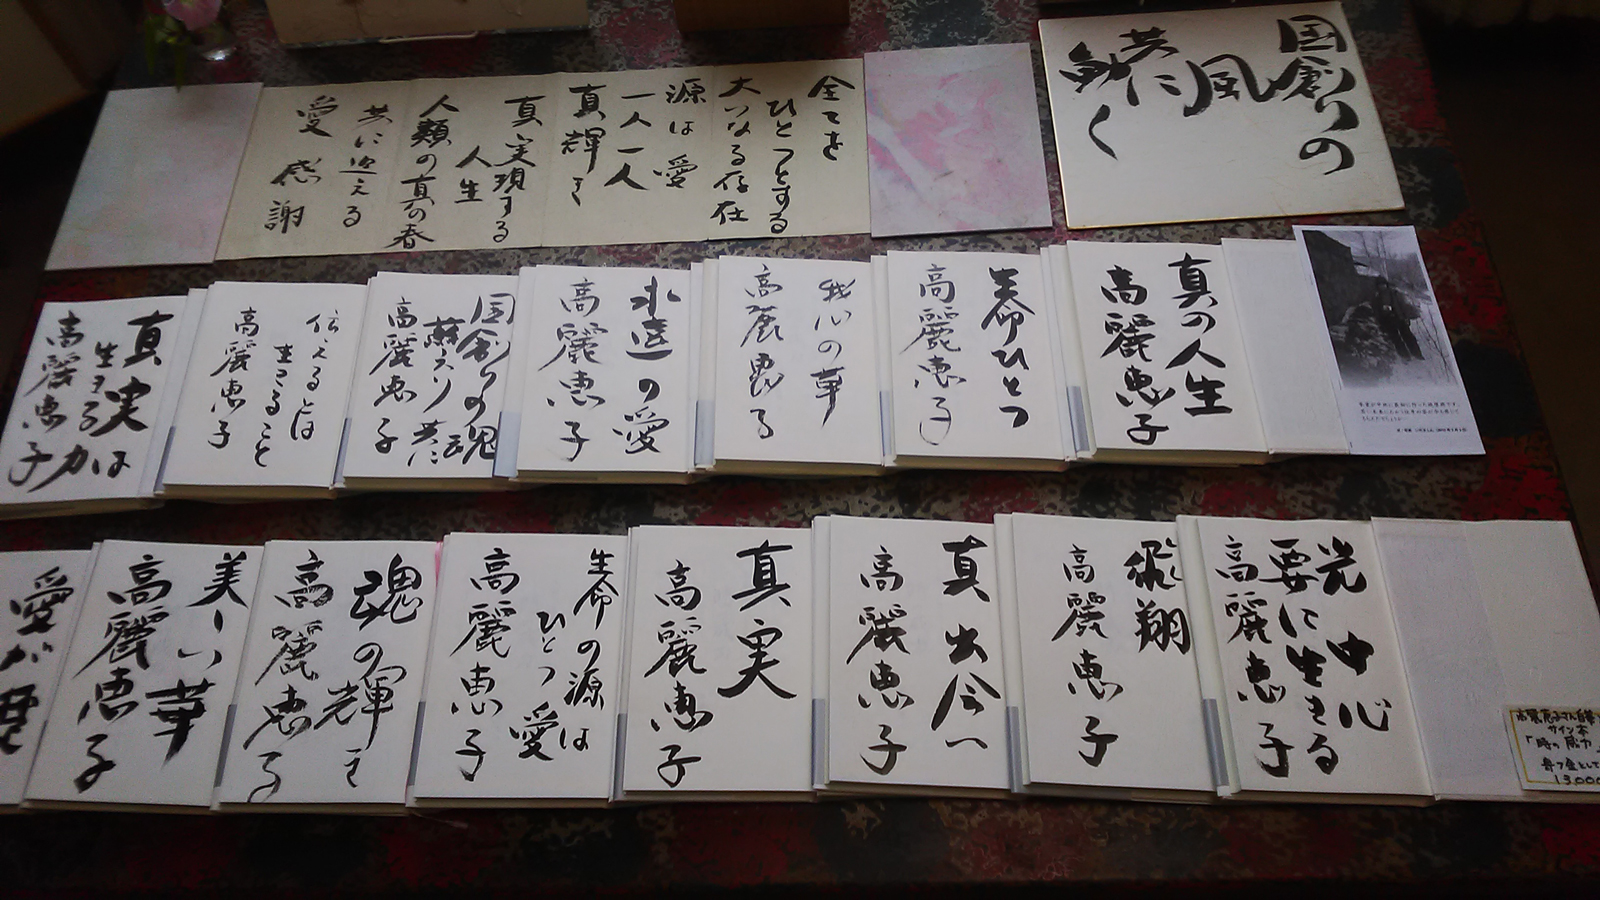 国創りの
風
共に
動く
全てを
ひとつとする
大いなる存在
源は愛
一人一人
真輝き
真実現する
人生
人類の真の春
共に迎える
愛 感謝
真の人生
高麗恵子
寿命ひとつ
高麗恵子
我心の華
高麗恵子
永遠の愛
高麗恵子
国創りの魂
蘇えり共に
高麗恵子
伝えるとは
生きること
高麗恵子
真実は
生きる力
高麗恵子
光 中心
要に生きる
高麗恵子
飛翔
高麗恵子
真 出会い
高麗恵子
真実
高麗恵子
生命の源は
ひとつ 愛
高麗恵子
魂の輝き
高麗恵子
美しい華
高麗恵子
愛が
高麗恵子さん自筆
サイン本
「時の風力」